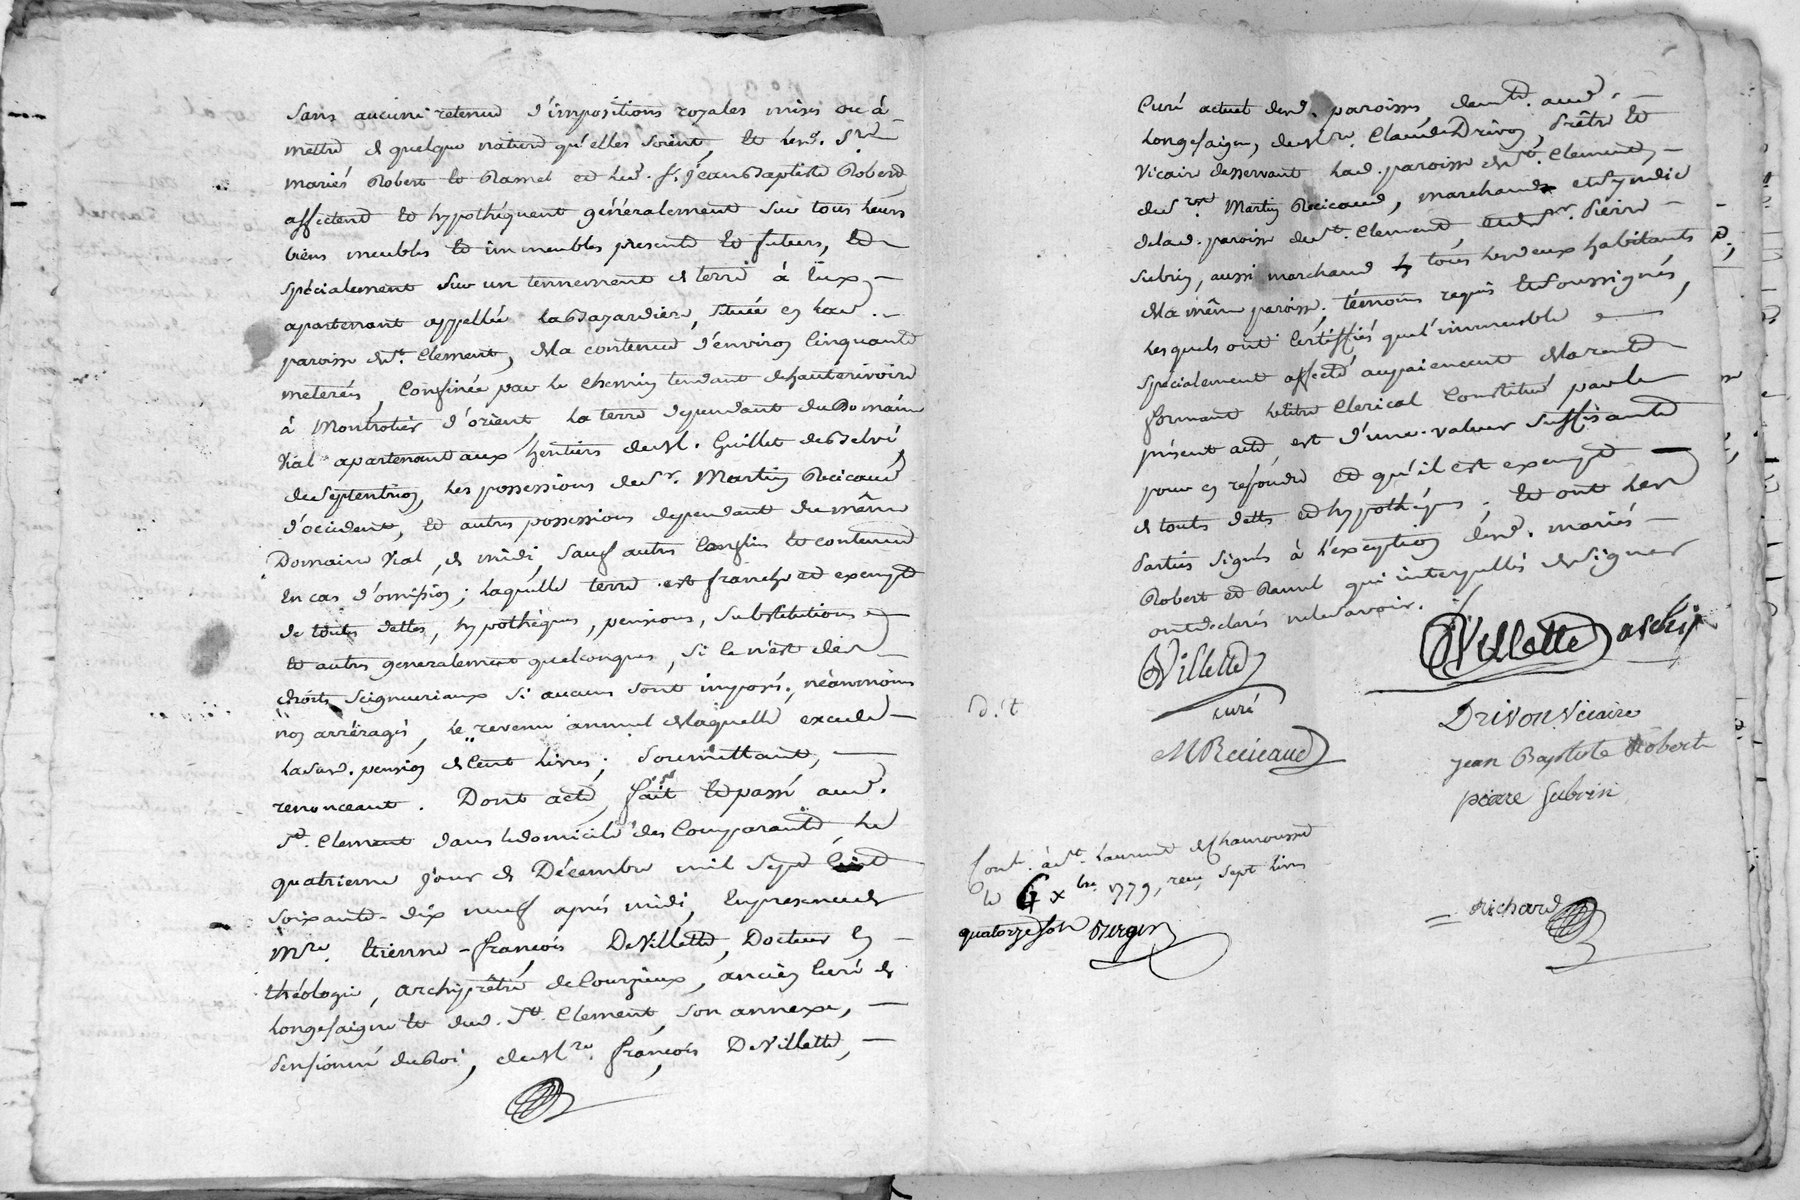 Sans aucune retenue d'impositions royales mises ou à
mettre de quelque nature qu'elles soient, et lesd. Srs
mariés Robert et Ramel et led. S. Jean Baptiste Robert,
affectent et hypothéquent généralement sur tous leurs
biens meubles et immeubles presents et futurs, et
spécialement sur un tennement de terre à eux
apartenant appellée, située en lad.
paroisse de St. Clement, de la contenue d'environ cinquante
meterées, confinée par le chemin tendant de hauterivoire
à Montrotier d'orient, la terre dependant du Domaine
Vial apartenant aux héritiers de M. Guillet
de septentrion, les possessions de Sr. Martin Recicaud
d'occident, et autres possessions dependant du même
Domaine Vial, de midi, sauf autres confins et contenue
en cas d'omission; laquelle terre est franche et exempte
de toutes dettes, hypothéques, pensions, substitutions
et autres generalement quelconques, si ce n'est des
droits seigneuriaux si aucuns sont imposés, néanmoins
nos arrérages, le revenu annuel de laquelle excede
lasusd. pension de cent livres; soumettant,
renonceant. Dont acte, fait et passé aud.
St. Clement dans le domicile des comparants, le
quatrieme jour de Décembre mil sept cent
soixante-dix neuf après midi, en presence de
Mre. Etienne-françois DeVillette, Docteur en
théologie, archiprêtre de Courzieux, ancien curé de
Longesaigne et dud. St. Clement, son annexe,
Pensionné du Roi, de Mre. françois DeVillette,
Curé actuel desd. paroisses de St. aud.
Longesaigne, de Mre. Claude Drivon, Prêtre et
Vicaire desservant lad. paroisse de St. Clement,
de Sr. Martin Recicaud, marchand et syndic
de lad. paroisse de St. Clement, et de Sr. Pierre
Subrin, aussi marchand tous les deux habitants
de la même paroisse, témoins requis et soussignés,
lesquels ont certiffiés que l'immeuble
spécialement affecté au paiement de la rente
formant le titre clerical constitué par le
présent acte, est d'une valeur suffisante
pour en réfondre et qu'il est exempt
de touts dettes et hypothéques; et ont lesd
Parties signés à l'exception desd. mariés
Robert et Ramel qui interpellés de signer
ont declarés ne le savoir.
DeVillette
DeVillette
curé
Drivon Vicaire
MRecicaud
jean Baptiste Robert
piere Subrin
Cont. à St. Laurent de Chamousset
le 6 xbre. 1779, reçu sept livres
quatorze sols
Richard